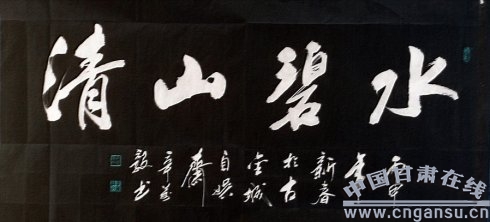 水碧山清
新春
於古
金城
自娱
齋
中国甘肃在线
www.cngansu.cn